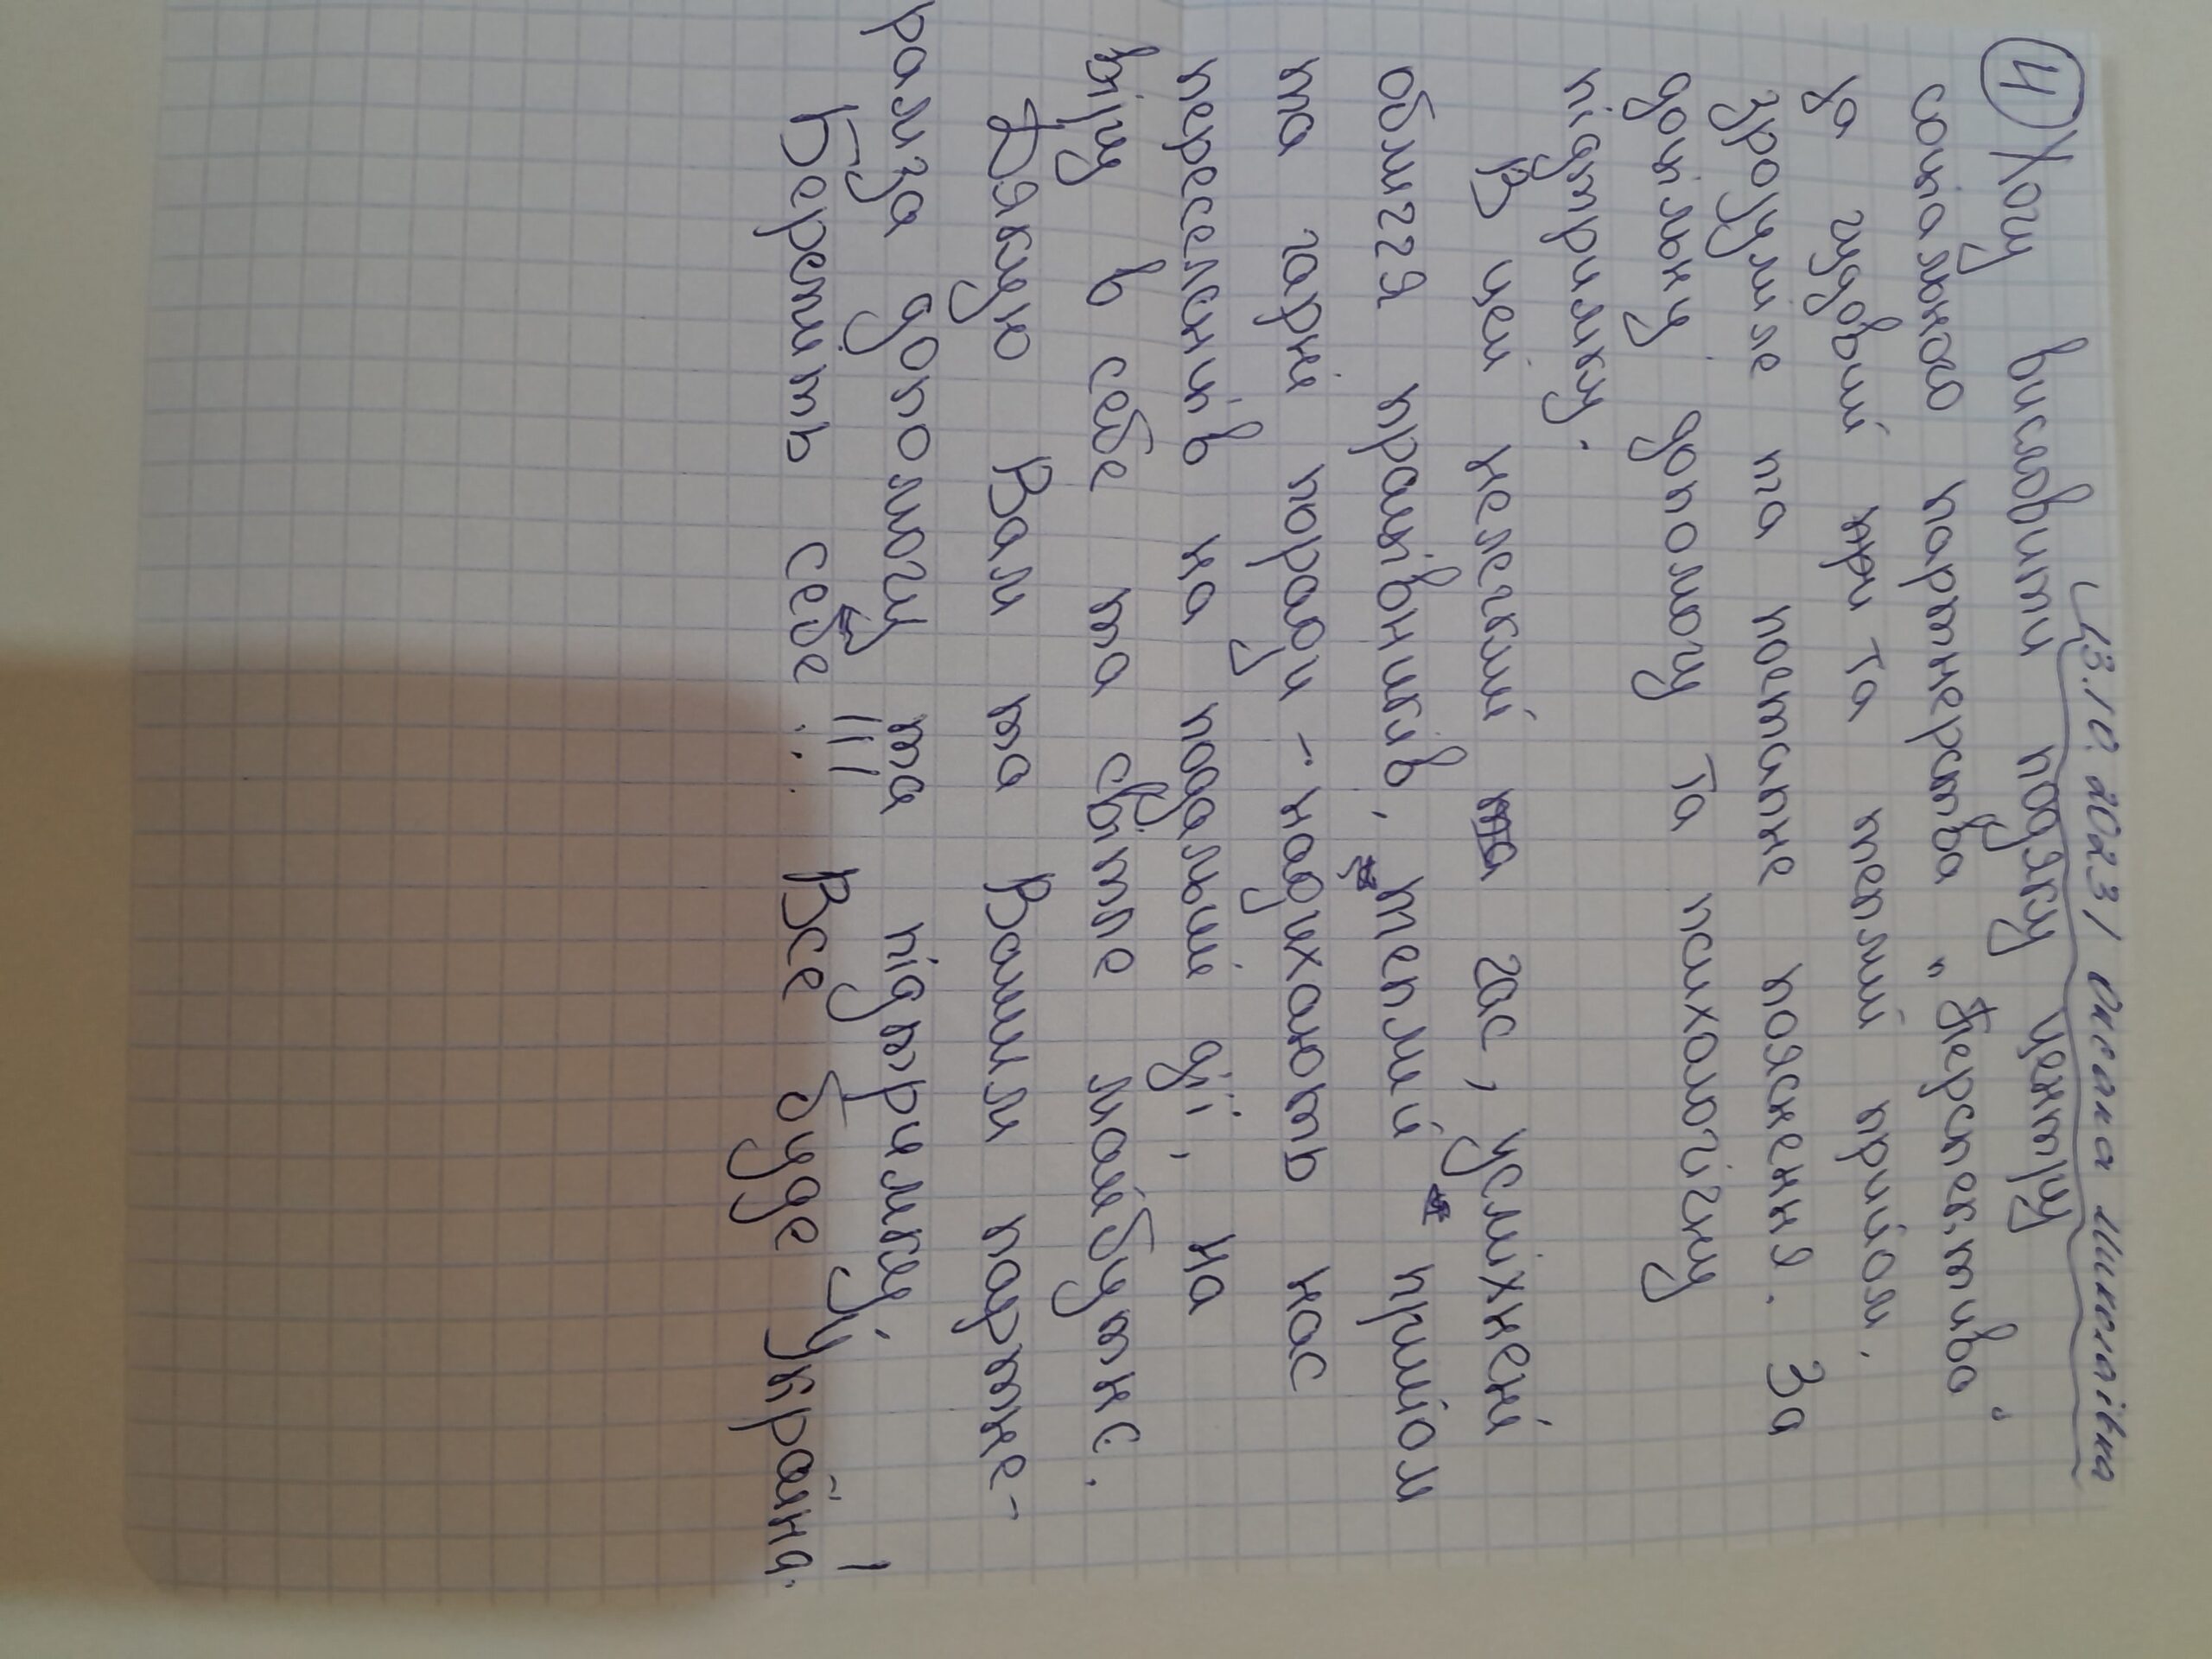 13.10.2023 / Оксана Миколаївна
4 Хочу висловити подяку центру
соціального партнерства "Перспектива"
за чудовий та теплий прийом,
зрозуміле та поетапне пояснення. За
доцільну допомогу та психологічну
підтримку.
В цей нелегкий час, усміхнені
обличчя працівників, теплий прийом
та гарні поради - надихають нас
переселенців на подальші дії, на
віру в себе та світле майбутнє.
Дякую Вам та Вашим партне-
рам за допомогу та підтримку,
Бережіть себе!!! Все буде Україна!